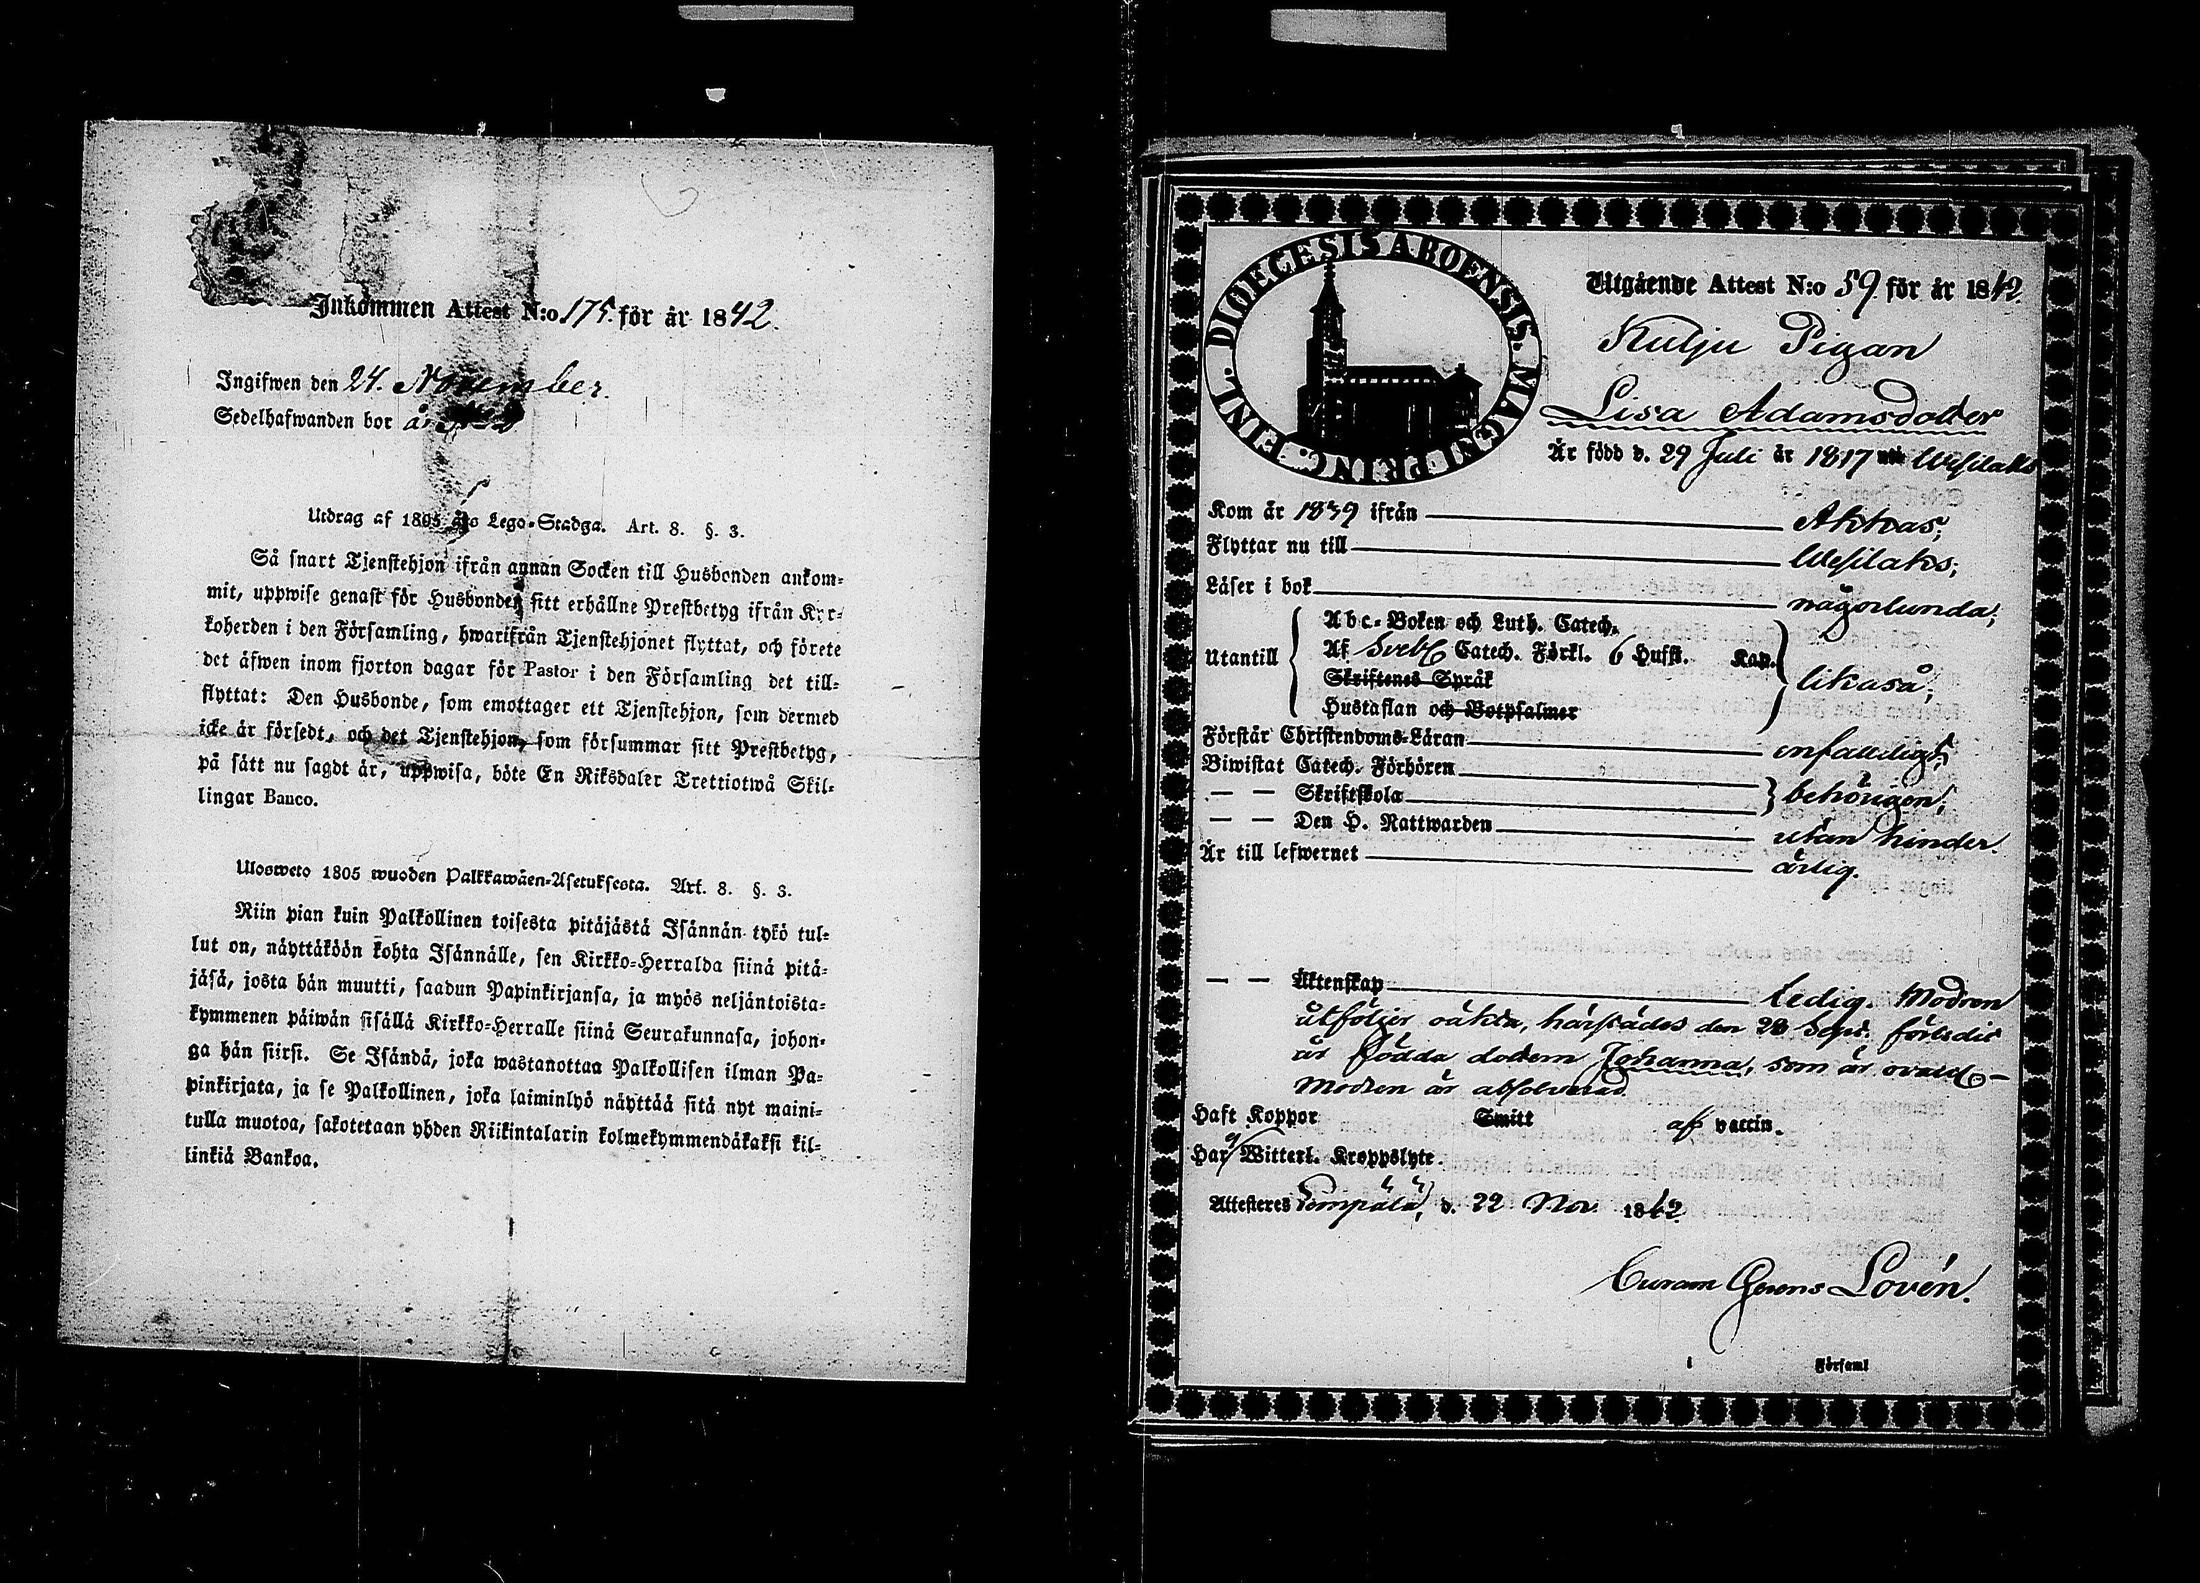 Inkommen Attest N:o 175. för år 1842.
Ingifwen den 24. November.
Sedelhafwanden bor å
Utdrag af 1805 års Lego-Stadga. Art. 8. §. 3.
Så snart Tjenstehjon ifrån annan Socken till Husbonden ankom-
mit, uppwise genast för Husbonden sitt erhållne Prestbetyg ifrån Kyr-
koherden i den Församling, hwarifrån Tjenstehjonet flyttat, och förete
det äfwen inom fjorton dagar för Pastor i den Församling det till-
flyttat: Den Husbonde, som emottager ett Tjenstehjon, som dermed
icke är försedt, och det Tjenstehjon, som försummar sitt Prestbetyg,
på sätt nu sagdt är, uppwisa, böte En Riksdaler Trettiotwå Skil-
lingar Banco.
Ulosweto 1805 wuoden Palkkawäen-Asetuksesta. Art. 8. §. 3.
Niin pian kuin Palkollinen toisesta pitäjästä Isännän tykö tul-
lut on, näyttäköön kohta Isännälle, sen Kirkko-Herralda siinä pitä-
jäsä, josta hän muutti, saadun Papinkirjansa, ja myös neljäntoista-
kymmenen päiwän sisällä Kirkko-Herralle siinä Seurakunnasa, johon-
ga hän siirsi. Se Isändä, joka wastanottaa Palkollisen ilman Pa-
pinkirjata, ja se Palkollinen, joka laiminlyö näyttää sitä nyt maini-
tulla muotoa, sakotetaan yhden Riikintalarin kolmekymmendäkaksi kil-
linkiä Bankoa.
DIOECESIS ABOENSIS. MAGNI PRINC. FINL.
Utgående Attest N:o 59 för år 1842.
Kulju Pigan
Lisa Adamsdotter
Är född d. 29 Juli år 1817 uti Wesilaks
Kom år 1839 ifrån Akkas;
Flyttar nu till Wesilaks;
Läser i bok någorlunda;
Utantill
Abc-Boken och Luth. Catech.
Af Sveb. Catech. Förkl. 6 Hufst. Kap.
Skriftenes Språk
Hustaflan och Botpsalmer
likaså;
Förstår Christendoms-Läran enfaldigt;
Biwistat Catech. Förhören
— — Skriftskola behörigen;
— — Den H. Nattwarden utan hinder.
Är till lefwernet ärlig.
— — Äktenskap ledig. Modren
utföljer oäkta, härstädes den 28 Sept. förledit
år födda dottern Johanna, som är ovacc. —
Modren är absolverad.
Haft Koppor Smitt af vaccin.
Har ej Witterl. Kroppslyte.
Attesteres Lempälä, d. 22 Nov. 1842.
Curam Gerens Lovén.
i Församl